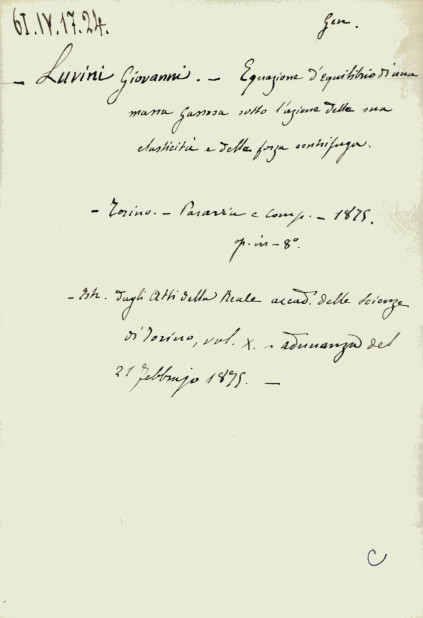 61.IV.17.24.
Gen.
- Luvini Giovanni. - Equazione d'equilibrio di una
massa gassosa sotto l'azione della sua
elasticità e della forza centrifuga.
- Torino. - Paravia e comp. - 1875.
op. in-8°.
- Estr. dagli Atti della Reale accad. delle Scienze
di Torino, vol. X. - adunanza del
21 febbrajo 1875. -
C